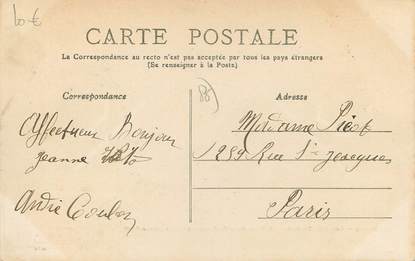 10 €
CARTE POSTALE
La Correspondance au recto n'est pas acceptée par tous les pays étrangers
(Se renseigner à la Poste)
Correspondance
88
Adresse
Affectueux Bonjour
Jeanne
André
Madame
Rue St Jacques
Paris